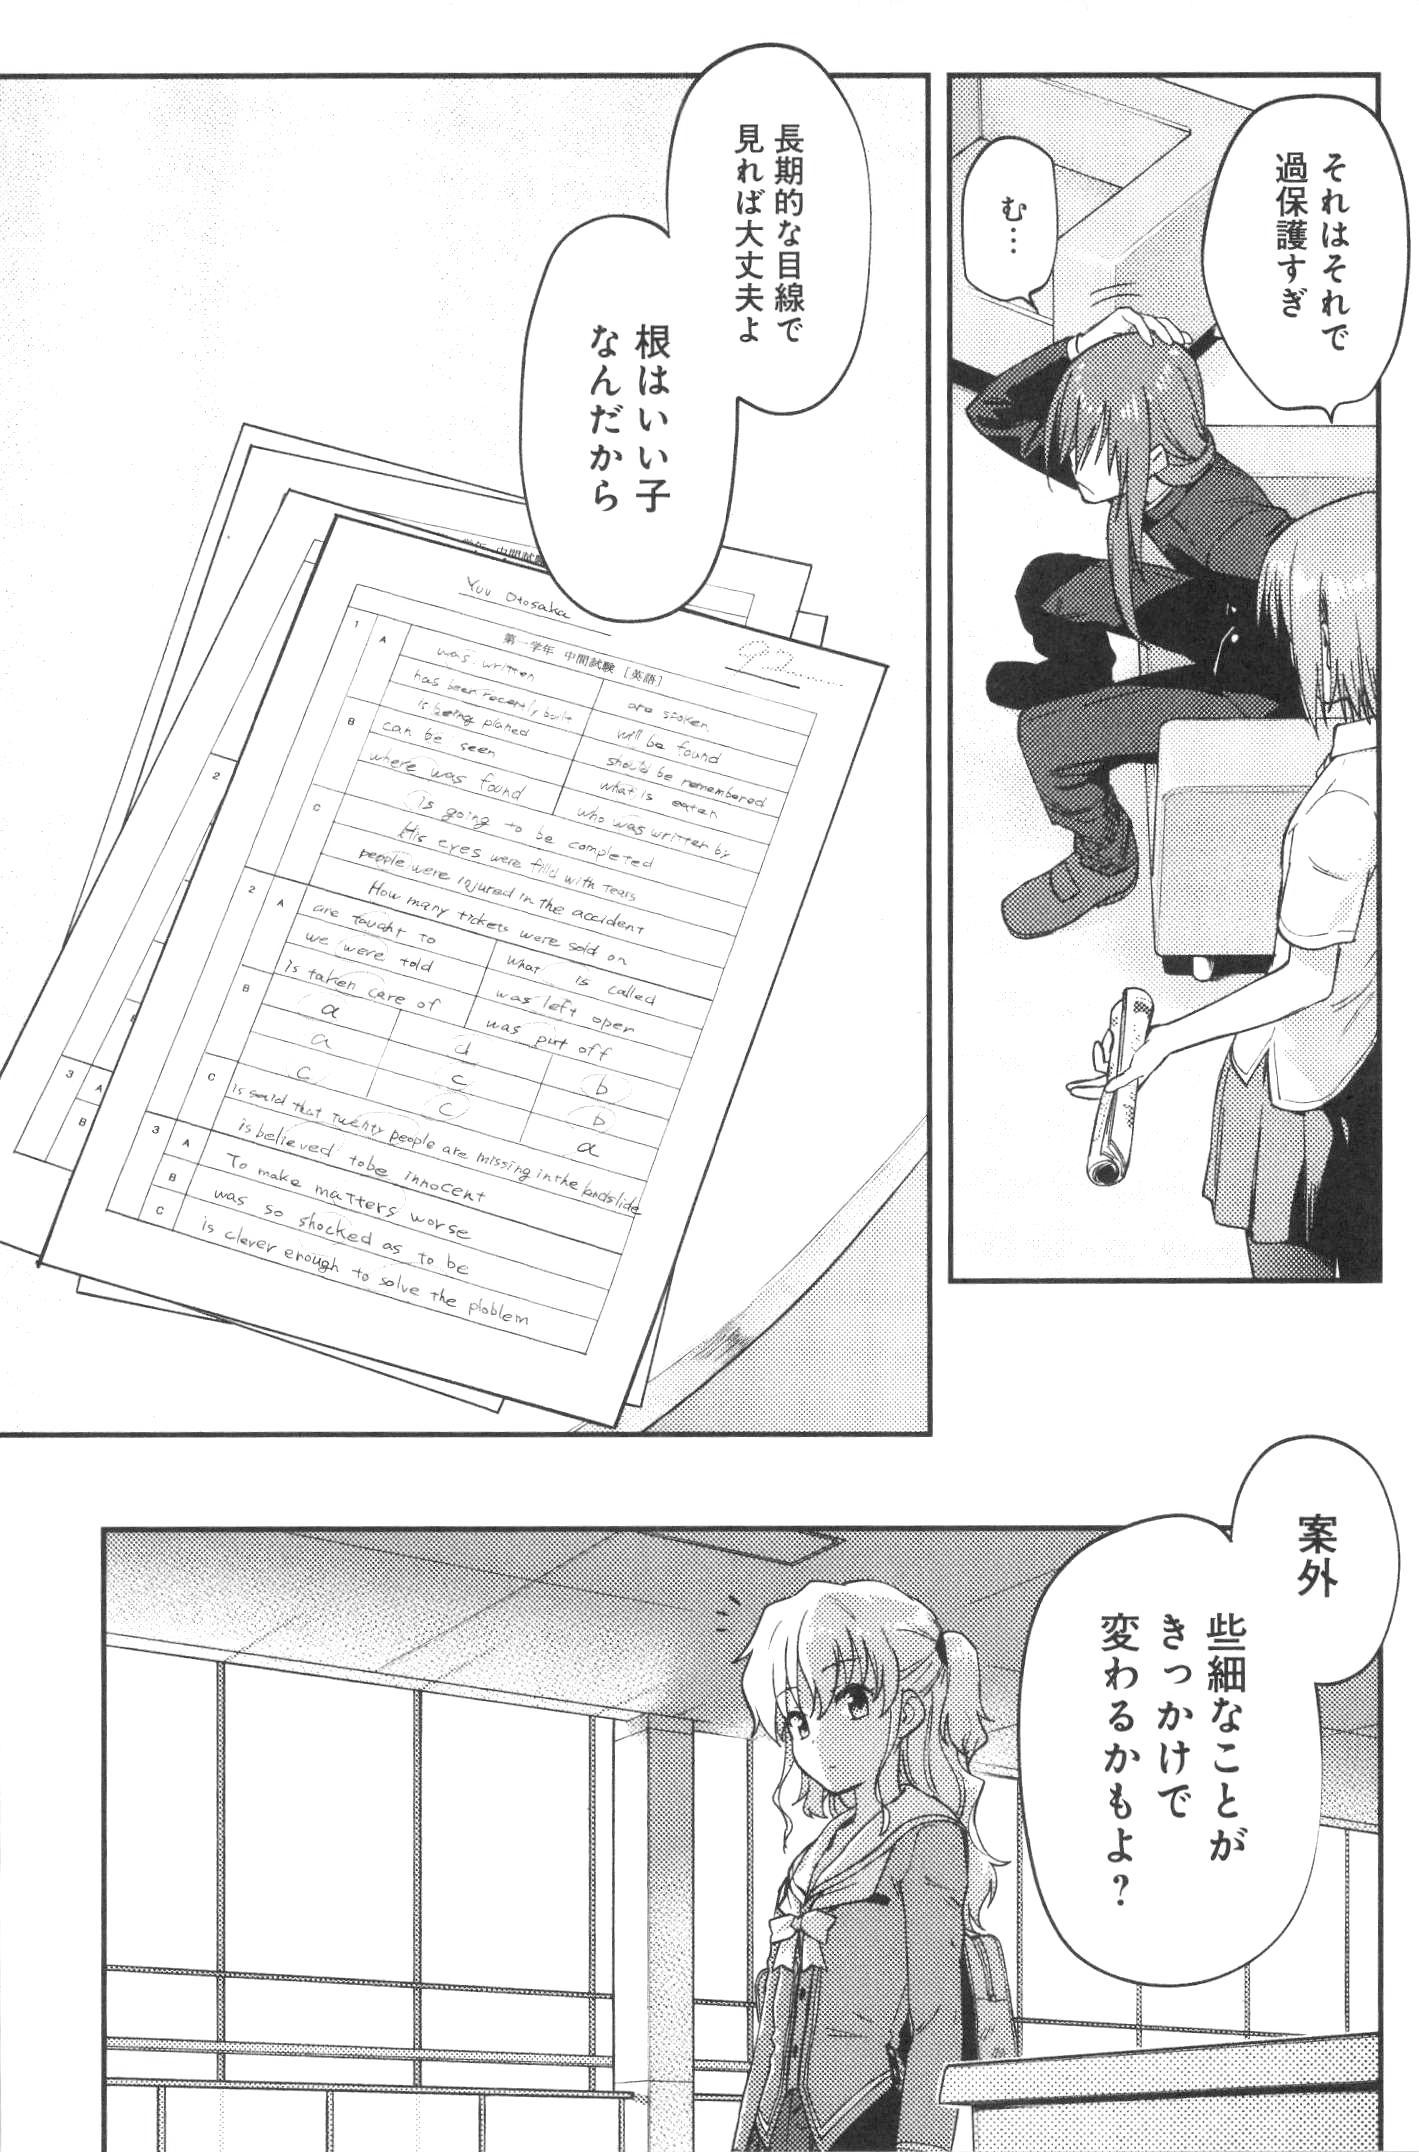 それはそれで
過保護すぎ
む…
長期的な目線で
見れば大丈夫よ
根はいい子
なんだから
中間試験
Yuu Otosaka
92
第一学年 中間試験 [英語]
1
A
was written
are spoken
has been recently built
will be found
is being planed
should be remembered
B
can be seen
what is eaten
where was found
who was written by
C
is going to be completed
His eyes were filld with tears
people were injured in the accident
How many tickets were sold on
2
A
are taught to
what is called
we were told
was left open
is taken care of
was put off
B
a
d
b
a
c
b
c
c
a
C
is said that twenty people are missing in the landslide
is believed tobe innocent
3
A
To make matters worse
B
was so shocked as to be
C
is clever enough to solve the ploblem
2
3
A
B
案外
些細なことが
きっかけで
変わるかもよ?